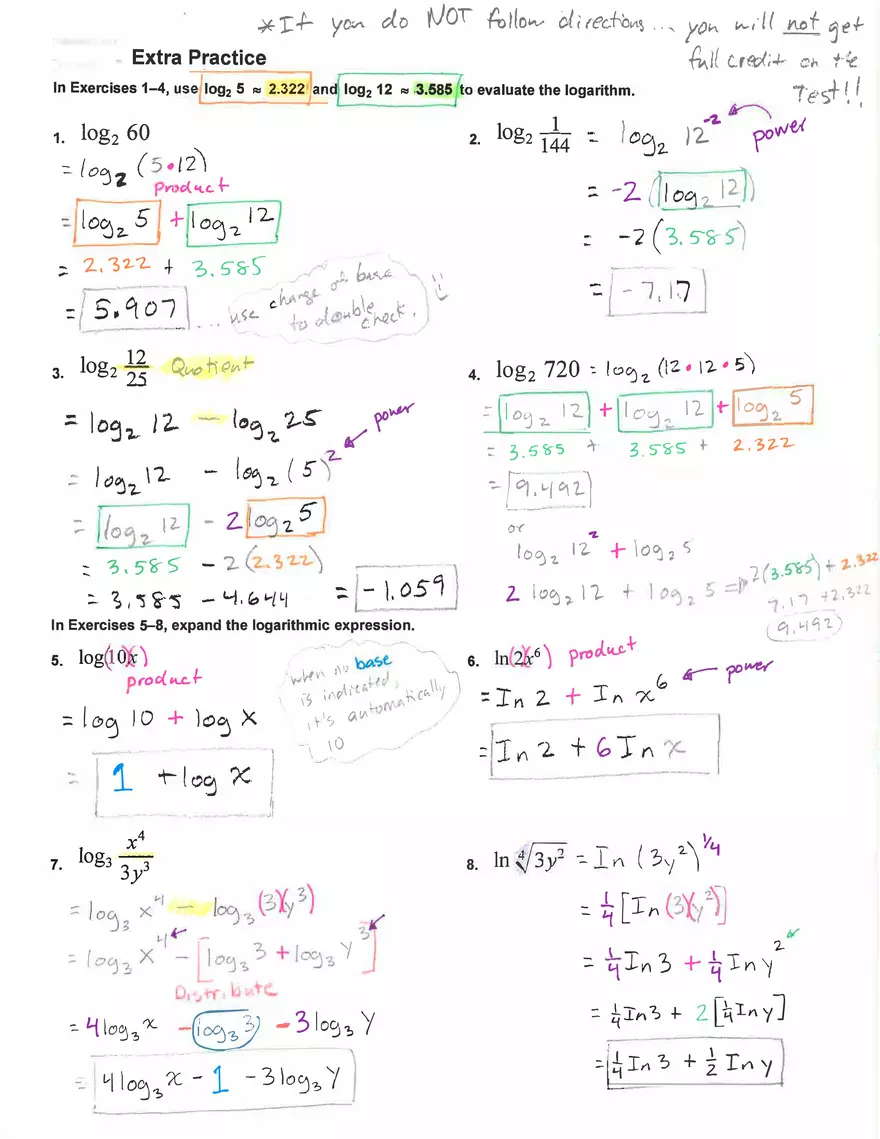 *If you do NOT follow directions... you will not get
full credit on the
Test!!
Extra Practice
In Exercises 1–4, use log₂ 5 ≈ 2.322 and log₂ 12 ≈ 3.585 to evaluate the logarithm.
1. log₂ 60
= log₂ (5•12)
product
= log₂ 5 + log₂ 12
= 2.322 + 3.585
= 5.907 ... use change of base
to double
check.
2. log₂ 1/144 = log₂ 12⁻² power
= -2 (log₂ 12)
= -2 (3.585)
= -7.17
3. log₂ 12/25 Quotient
= log₂ 12 - log₂ 25
power
= log₂ 12 - log₂ (5)²
= log₂ 12 - 2 log₂ 5
= 3.585 - 2 (2.322)
= 3.585 - 4.644 = -1.059
4. log₂ 720 = log₂ (12•12•5)
= log₂ 12 + log₂ 12 + log₂ 5
= 3.585 + 3.585 + 2.322
= 9.492
or
log₂ 12² + log₂ 5
2 log₂ 12 + log₂ 5 => 2(3.585) + 2.322
7.17 + 2.322
9.492
In Exercises 5–8, expand the logarithmic expression.
5. log(10)(x)
product
= log 10 + log x
= 1 + log x
when no base
is indicated,
it's automatically
10
6. ln(2)(x⁶) product
= In 2 + In x⁶ power
= In 2 + 6 In x
7. log₃ x⁴/3y³
= log₃ x⁴ - log₃ (3)(y³)
= log₃ x⁴ - [log₃ 3 + log₃ y³]
Distribute
= 4 log₃ x - log₃ 3 - 3 log₃ y
= 4 log₃ x - 1 - 3 log₃ y
8. ln ∜3y² = In (3y²)^1/4
= 1/4 [In (3)(y²)]
= 1/4 In 3 + 1/4 In y²
= 1/4 In 3 + 2 [1/4 In y]
= 1/4 In 3 + 1/2 In y